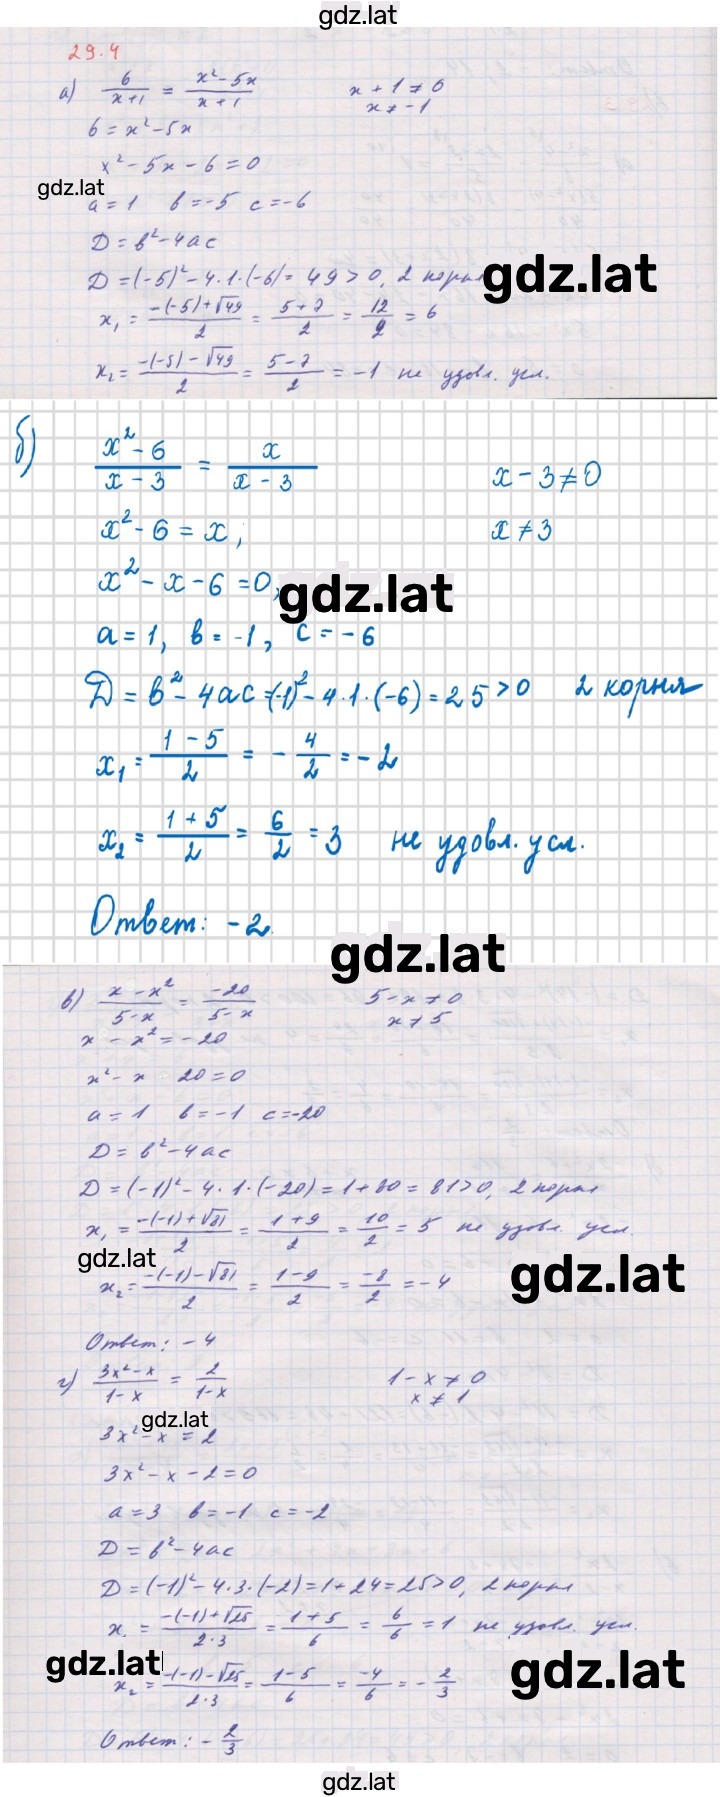 gdz.lat
29.4
а) 6/(x+1) = (x²-5x)/(x+1)    x+1≠0
x≠-1
6=x²-5x
x²-5x-6=0
gdz.lat
a=1 b=-5 c=-6
D=b²-4ac
D=(-5)²-4·1·(-6)=49>0, 2 корня
gdz.lat
x₁=(-(-5)+√49)/2=(5+7)/2=12/2=6
x₂=(-(-5)-√49)/2=(5-7)/2=-1 не удовл. усл.
б) (x²-6)/(x-3) = x/(x-3)    x-3≠0
x²-6=x;    x≠3
x²-x-6=0;
gdz.lat
a=1, b=-1, c=-6
D=b²-4ac=(-1)²-4·1·(-6)=25>0 2 корня
x₁=(1-5)/2=-4/2=-2
x₂=(1+5)/2=6/2=3 не удовл. усл.
Ответ: -2.
gdz.lat
в) (x-x²)/(5-x) = -20/(5-x)    5-x≠0
x≠5
x-x²=-20
x²-x 20=0
a=1 b=-1 c=-20
D=b²-4ac
D=(-1)²-4·1·(-20)=1+80=81>0, 2 корня
x₁=(-(-1)+√81)/2=(1+9)/2=10/2=5 не удовл. усл.
gdz.lat
gdz.lat
x₂=(-(-1)-√81)/2=(1-9)/2=-8/2=-4
Ответ: -4
г) (3x²-x)/(1-x) = 2/(1-x)    1-x≠0
x≠1
gdz.lat
3x²-x=2
3x²-x-2=0
a=3 b=-1 c=-2
D=b²-4ac
D=(-1)²-4·3·(-2)=1+24=25>0, 2 корня
x₁=(-(-1)+√25)/(2·3)=(1+5)/6=6/6=1 не удовл. усл.
gdz.lat
gdz.lat
x₂=(-(-1)-√25)/(2·3)=(1-5)/6=-4/6=-2/3
Ответ: -2/3
gdz.lat